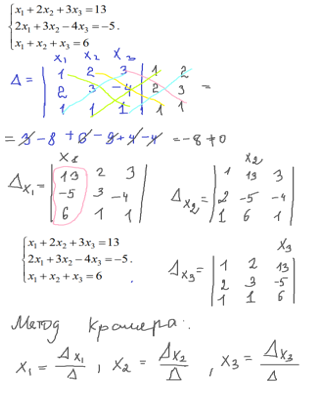 {x₁ + 2x₂ + 3x₃ = 13
2x₁ + 3x₂ - 4x₃ = -5.
x₁ + x₂ + x₃ = 6
x₁ x₂ x₃
Δ = | 1 2 3 | 1 2
2 3 -4 | 2 3 =
1 1 1 | 1 1
= 3 - 8 + 6 - 9 + 4 - 4 = -8 ≠ 0
x₁
Δx₁ = | 13 2 3 |
| -5 3 -4 |
| 6 1 1 |
x₂
Δx₂ = | 1 13 3 |
| 2 -5 -4 |
| 1 6 1 |
{x₁ + 2x₂ + 3x₃ = 13
2x₁ + 3x₂ - 4x₃ = -5.
x₁ + x₂ + x₃ = 6
x₃
Δx₃ = | 1 2 13 |
| 2 3 -5 |
| 1 1 6 |
Метод Крамера:
x₁ = Δx₁/Δ, x₂ = Δx₂/Δ, x₃ = Δx₃/Δ